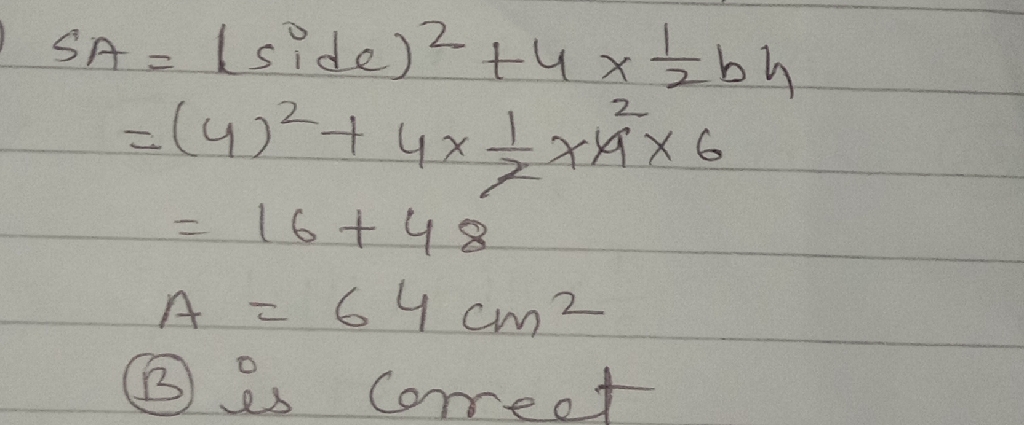 ) SA = (side)² + 4 × 1/2 bh
= (4)² + 4 × 1/2 × 4 2 × 6
= 16 + 48
A = 64 cm²
(B) is correct